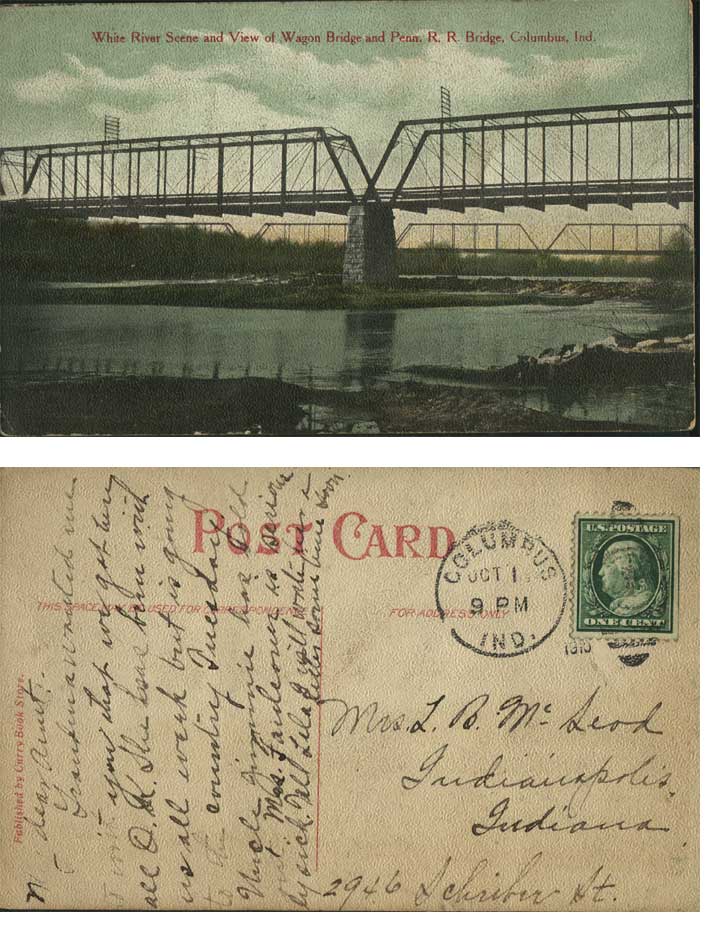 White River Scene and View of Wagon Bridge and Penn. R. R. Bridge, Columbus, Ind.
POST CARD
THIS SPACE MAY BE USED FOR CORRESPONDENCE
FOR ADDRESS ONLY
Published by Curry Book Store.
COLUMBUS
OCT 1
9 PM
IND.
1910
U.S. POSTAGE
ONE CENT
dear Aunt.
Grandma wanted me
to write you that we got here
all O.K. She has been with
us all week but is going
to the country Tuesday
Uncle Jimmie has sold
out Mrs. is serious
ly sick. Tell Lela I will write her a
letter some time soon.
Mrs. L. B. McLeod
Indianapolis,
Indiana
2946 Schriber St.